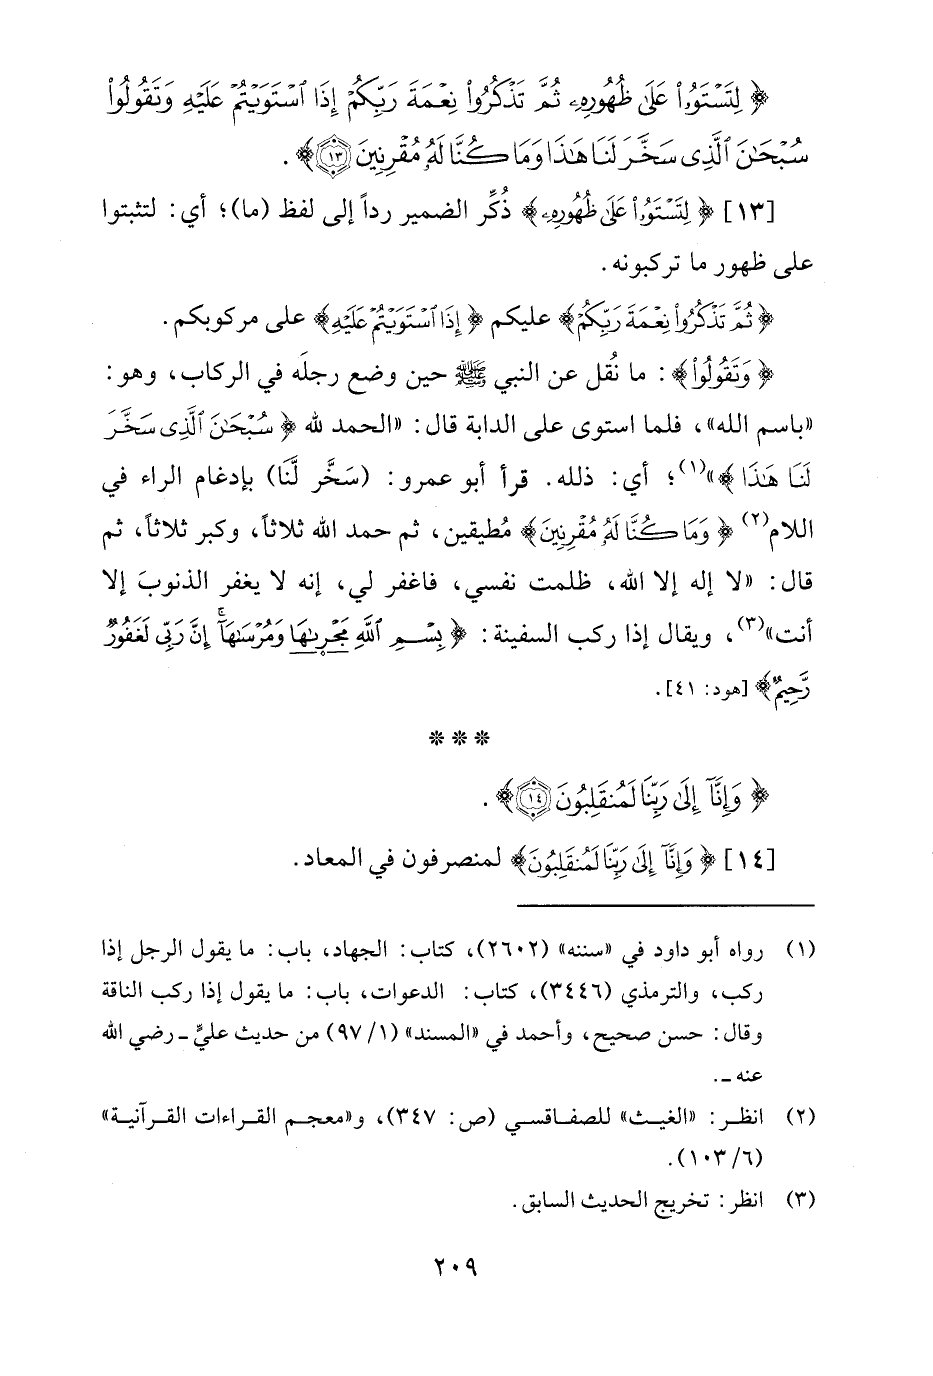 ﴿ لِتَسْتَوُۥا۟ عَلَىٰ ظُهُورِهِۦ ثُمَّ تَذْكُرُوا۟ نِعْمَةَ رَبِّكُمْ إِذَا ٱسْتَوَيْتُمْ عَلَيْهِ وَتَقُولُوا۟
سُبْحَٰنَ ٱلَّذِى سَخَّرَ لَنَا هَٰذَا وَمَا كُنَّا لَهُۥ مُقْرِنِينَ ١٣ ﴾ .
[١٣] ﴿ لِتَسْتَوُۥا۟ عَلَىٰ ظُهُورِهِۦ ﴾ ذُكِّر الضمير رداً إلى لفظ (ما)؛ أي: لتثبتوا
على ظهور ما تركبونه.
﴿ ثُمَّ تَذْكُرُوا۟ نِعْمَةَ رَبِّكُمْ ﴾ عليكم ﴿ إِذَا ٱسْتَوَيْتُمْ عَلَيْهِ ﴾ على مركوبكم.
﴿ وَتَقُولُوا۟ ﴾: ما نُقل عن النبي ﷺ حين وضع رجلَه في الركاب، وهو:
«باسم الله»، فلما استوى على الدابة قال: «الحمد لله ﴿ سُبْحَٰنَ ٱلَّذِى سَخَّرَ
لَنَا هَٰذَا ﴾»(١)؛ أي: ذلله. قرأ أبو عمرو: (سَخَّر لَّنَا) بإدغام الراء في
اللام(٢) ﴿ وَمَا كُنَّا لَهُۥ مُقْرِنِينَ ﴾ مُطيقين، ثم حمد الله ثلاثاً، وكبر ثلاثاً، ثم
قال: «لا إله إلا الله، ظلمت نفسي، فاغفر لي، إنه لا يغفر الذنوبَ إلا
أنت»(٣)، ويقال إذا ركب السفينة: ﴿ بِسْمِ ٱللَّهِ مَجْر۪ىٰهَا وَمُرْسَىٰهَآ ۚ إِنَّ رَبِّى لَغَفُورٌ
رَّحِيمٌ ﴾ [هود: ٤١].
* * *
﴿ وَإِنَّآ إِلَىٰ رَبِّنَا لَمُنقَلِبُونَ ١٤ ﴾ .
[١٤] ﴿ وَإِنَّآ إِلَىٰ رَبِّنَا لَمُنقَلِبُونَ ﴾ لمنصرفون في المعاد.
(١) رواه أبو داود في «سننه» (٢٦٠٢)، كتاب: الجهاد، باب: ما يقول الرجل إذا
ركب، والترمذي (٣٤٤٦)، كتاب: الدعوات، باب: ما يقول إذا ركب الناقة
وقال: حسن صحيح، وأحمد في «المسند» (١/ ٩٧) من حديث عليٍّ ـ رضي الله
عنه ـ.
(٢) انظر: «الغيث» للصفاقسي (ص: ٣٤٧)، و«معجم القراءات القرآنية»
(٦/ ١٠٣).
(٣) انظر: تخريج الحديث السابق.
٢٠٩